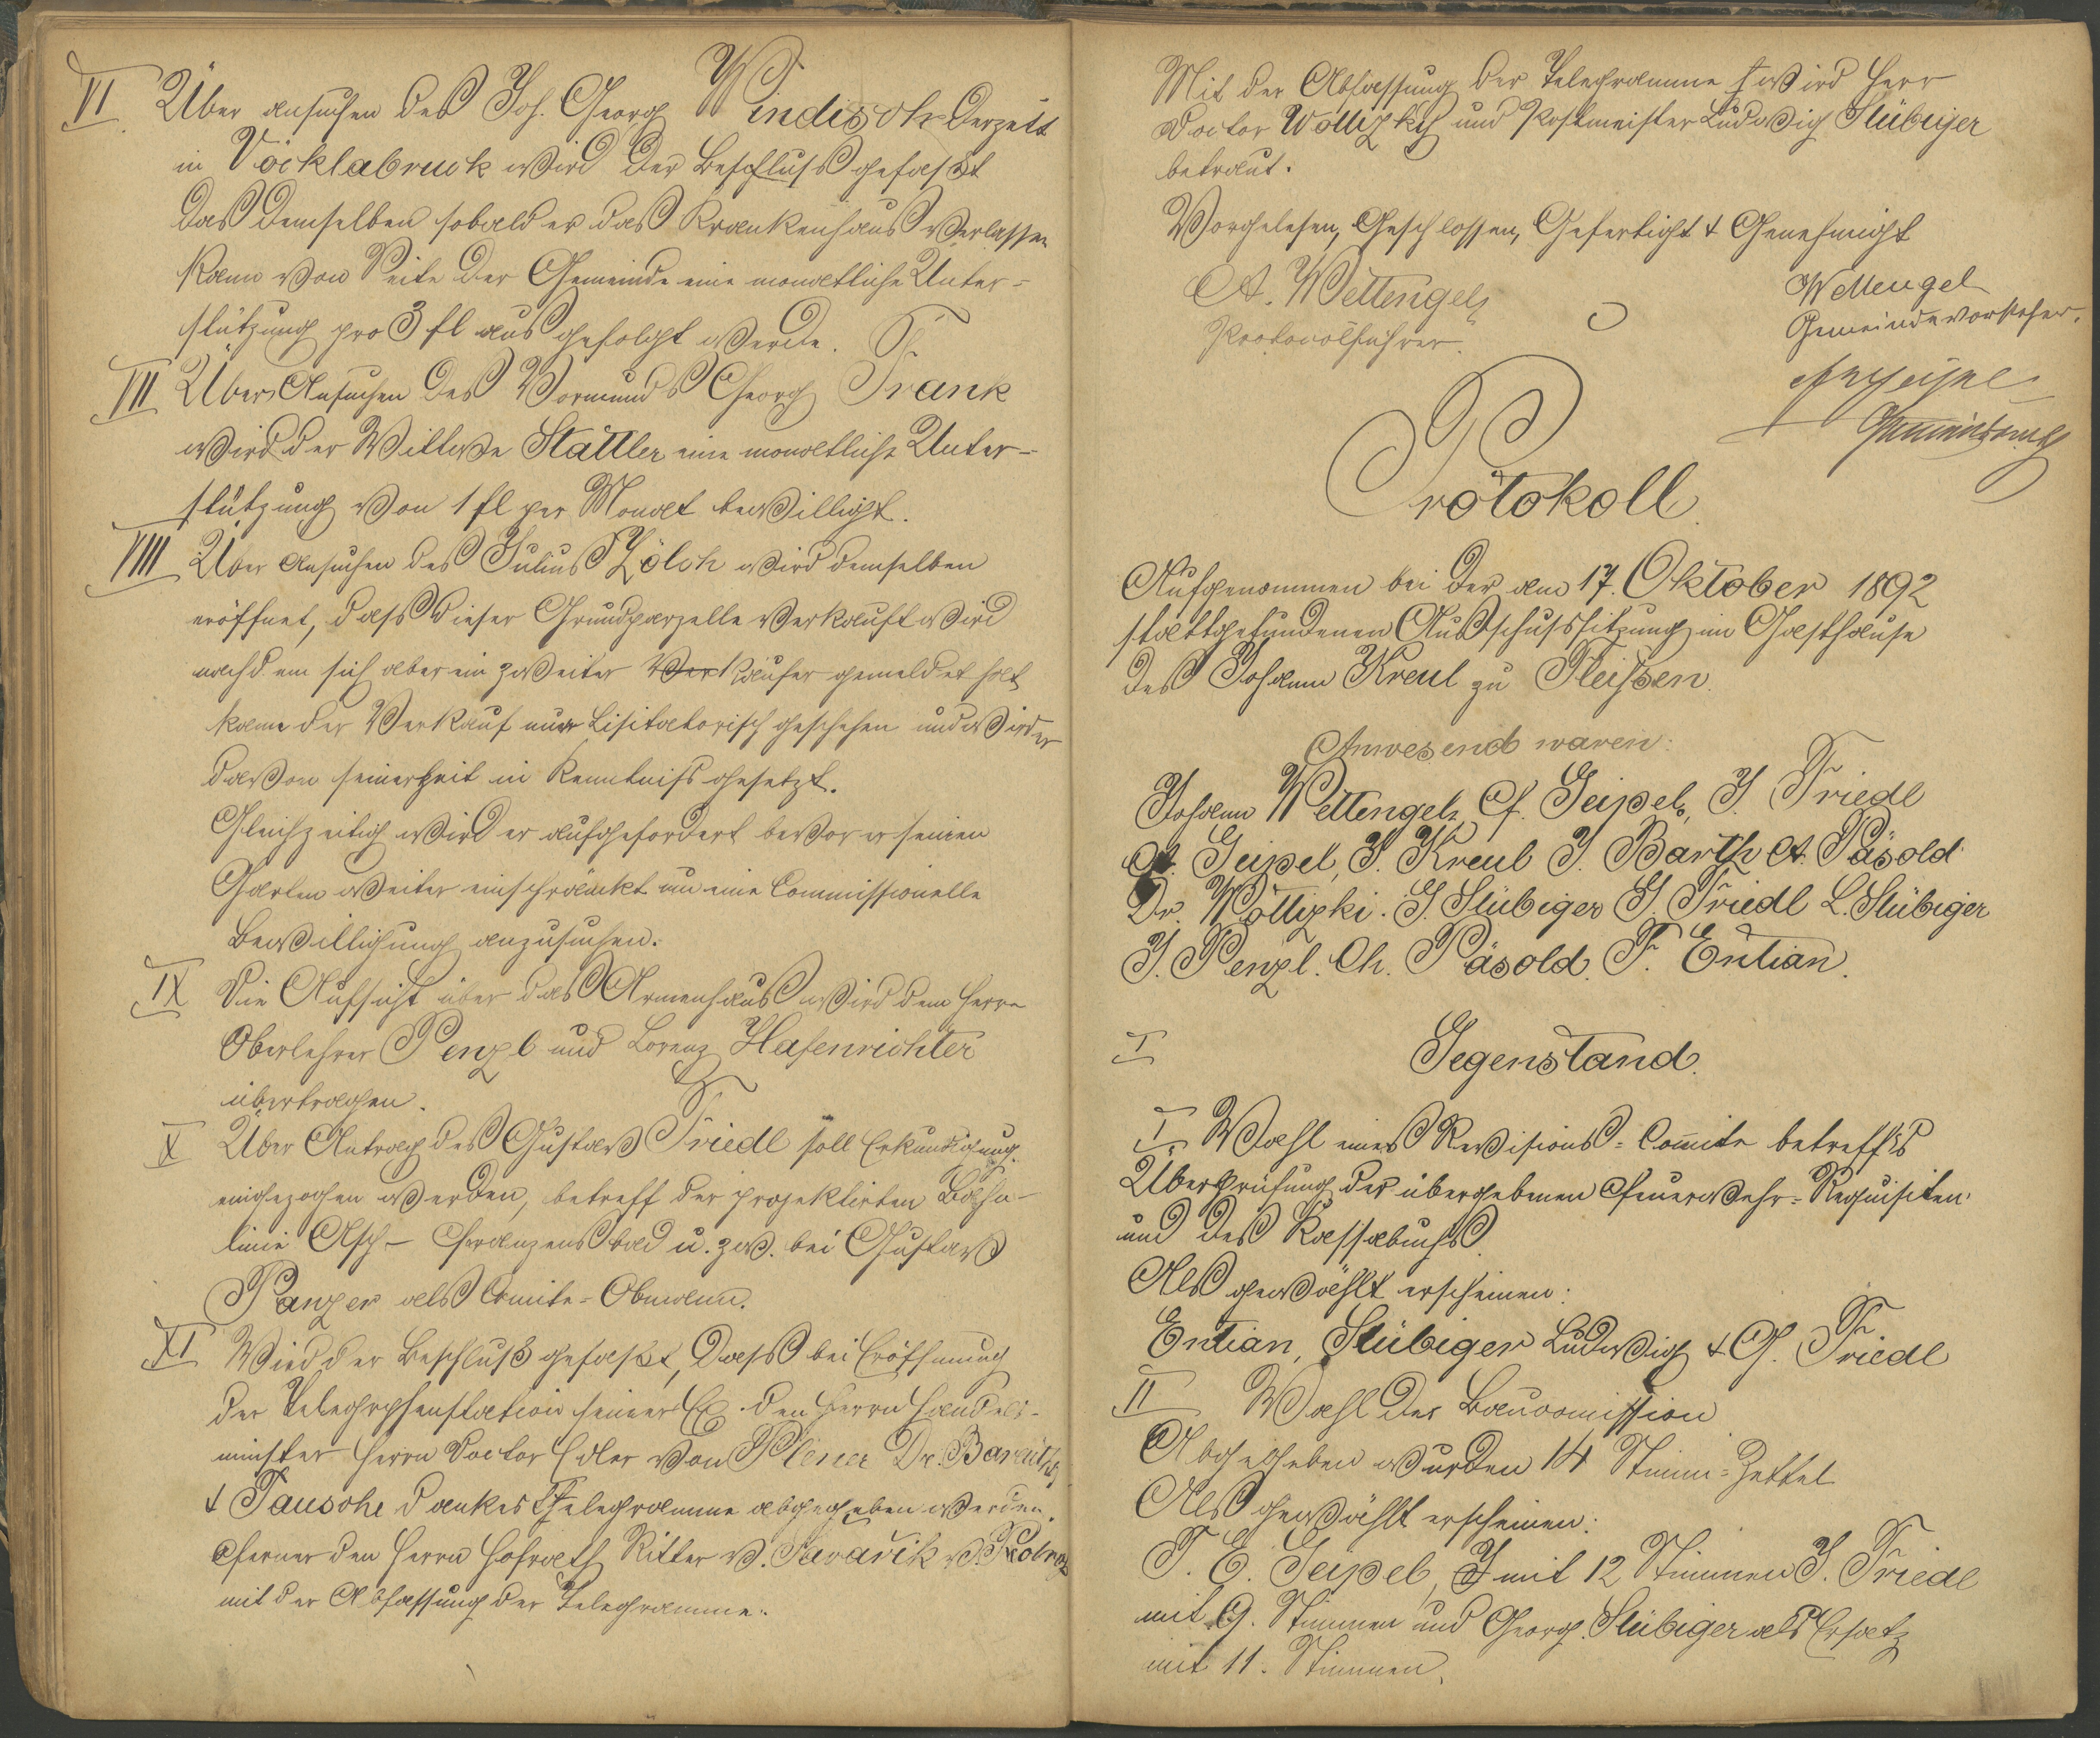 VI Über ansuchen des Joh. Georg Windisch derzeit
in Vöcklabruck wird der Beschluss gefasst
das demselben sobald er das Krankenhaus verlassen
kann von Seite der Gemeinde eine monatliche Unter-
stützung pro 3 fl ausgefolgt werde.
VII Über Ansuchen des Vormunds Georg Frank
wird der Wittwe Stättler eine monatliche Unter-
stützung von 1 fl per Monat bewilligt.
VIII Über Ansuchen des Julius Zölch wird demselben
eröffnet, dass dieser Grundparzelle verkauft wird
nachdem sich aber ein zweiter Ver Käufer gemeldet hat
kann der Verkauf nur Lisitatorisch geschehen und wird er
davon seinerzeit in Kenntniss gesetzt.
Gleichzeitig wird er aufgefordert bevor er seinen
Garten weiter einschränckt um eine Commissionelle
Bewilligung anzusuchen.
IX Die Aufsicht über das Armenhaus wird dem Herrn
Oberlehrer Penzl und Lorenz Hafenrichter
übertragen.
X Über Antrag des Gustav Friedl soll Erkundigung
eingezogen werden, betreff der projektirten Bahn-
linie Asch - Franzensbad u. zw. bei Gustav
Panzer als Comite-Obmann.
XI Wird der Beschluss gefasst, dass bei Eröffnung
der Telegrphenstation seiner Ex. den Herrn Handels-
minster Herrn Doctor Edler von Plener Dr. Bareuther
& Tausche dankes Telegramme abgegeben werden.
Ferner den Herrn Hofrath Ritter v. v.
mit der Abfassung der Telegramme.
Mit der Abfassung der Telegramme wird Herr
Doctor Wottizky und Postmeister Ludwig Stübiger
betraut.
Vorgelesen, Geschlossen, Gefertigt & Genehmigt
A. Wettengel
Protocolführer.
Wettengel
Gemeindevorsteher.
Protokoll
Aufgenommen bei der am 17. Oktober 1892
stattgefundenen Ausschusssitzung im Gasthause
des Johann Kreul zu Fleissen.
Anwesend waren:
Johann Wettengel, F. Geipel, J. Friedl
A. Geipel, J. Kreul J. Barth A. Päsold
Dr. Wottizki. G. Stübiger G. Friedl L. Stübiger
J. Penzl. Ch. Päsold. F. Entian.
I Gegenstand.
I Wahl eines Revisions-Comite betreffs
Überprüfung der übergebenen Feuerwehr-Requisiten
und des Kassabuchs.
Als gewählt erscheinen:
Entian, Stübiger Ludwig & G. Friedl
II Wahl der Baucomission
Abgegeben wurden 14 Stimm-Zettel
Als gewählt erscheinen:
F. E. Geipel, mit 12 Stimmen J. Friedl
mit 9. Stimmen und Georg. Stübiger als Ersatz
mit 11. Stimmen.